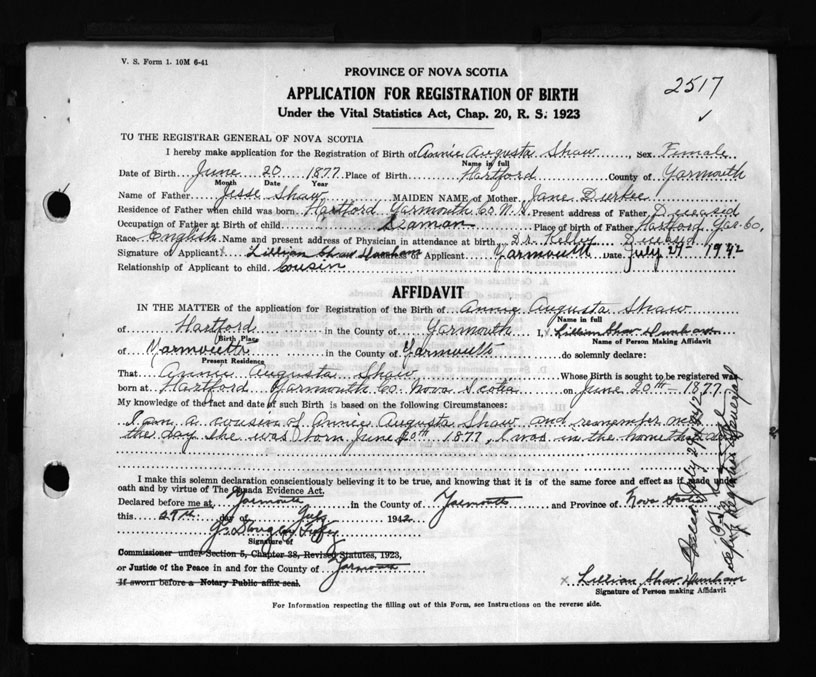 V. S. Form 1. 10M 6-41
2517
PROVINCE OF NOVA SCOTIA
APPLICATION FOR REGISTRATION OF BIRTH
Under the Vital Statistics Act, Chap. 20, R. S. 1923
TO THE REGISTRAR GENERAL OF NOVA SCOTIA
I hereby make application for the Registration of Birth of Annie Augusta Shaw, Sex Female
Name in full
Date of Birth June 20 1877 Place of Birth Hartford County of Yarmouth
Month Date Year
Name of Father Jesse Shaw MAIDEN NAME of Mother Jane Durkee
Residence of Father when child was born Hartford Yarmouth Co. N.S. Present address of Father Deceased
Occupation of Father at Birth of child Seaman Place of birth of Father Hartford Yar. Co.
Race English Name and present address of Physician in attendance at birth Dr. Kelley Deceased
Signature of Applicant Lillian Shaw Durham of Applicant Yarmouth Date July 29th 1942
Relationship of Applicant to child Cousin
AFFIDAVIT
IN THE MATTER of the application for Registration of the Birth of Annie Augusta Shaw
Name in full
of Hartford in the County of Yarmouth I, Lillian Shaw Durham
Birth Place
Name of Person Making Affidavit
of Yarmouth in the County of Yarmouth do solemnly declare:
Present Residence
That Annie Augusta Shaw Whose Birth is sought to be registered was
born at Hartford Yarmouth Co. Nova Scotia on June 20th 1877
My knowledge of the fact and date of such Birth is based on the following Circumstances:
I am a cousin of Annie Augusta Shaw and remember
the day she was born June 20th 1877, I was in the home that day
I make this solemn declaration conscientiously believing it to be true, and knowing that it is of the same force and effect as if made under
oath and by virtue of The Canada Evidence Act.
Declared before me at Yarmouth in the County of Yarmouth and Province of Nova Scotia
this 29th day of July 1942
G. Douglas
Signature of
Commissioner under Section 5, Chapter 38, Revised Statutes, 1923,
or Justice of the Peace in and for the County of Yarmouth
If sworn before a Notary Public affix seal.
x Lillian Shaw Durham
Signature of Person making Affidavit
For Information respecting the filling out of this Form, see Instructions on the reverse side.
July 1942
Deputy Registrar General